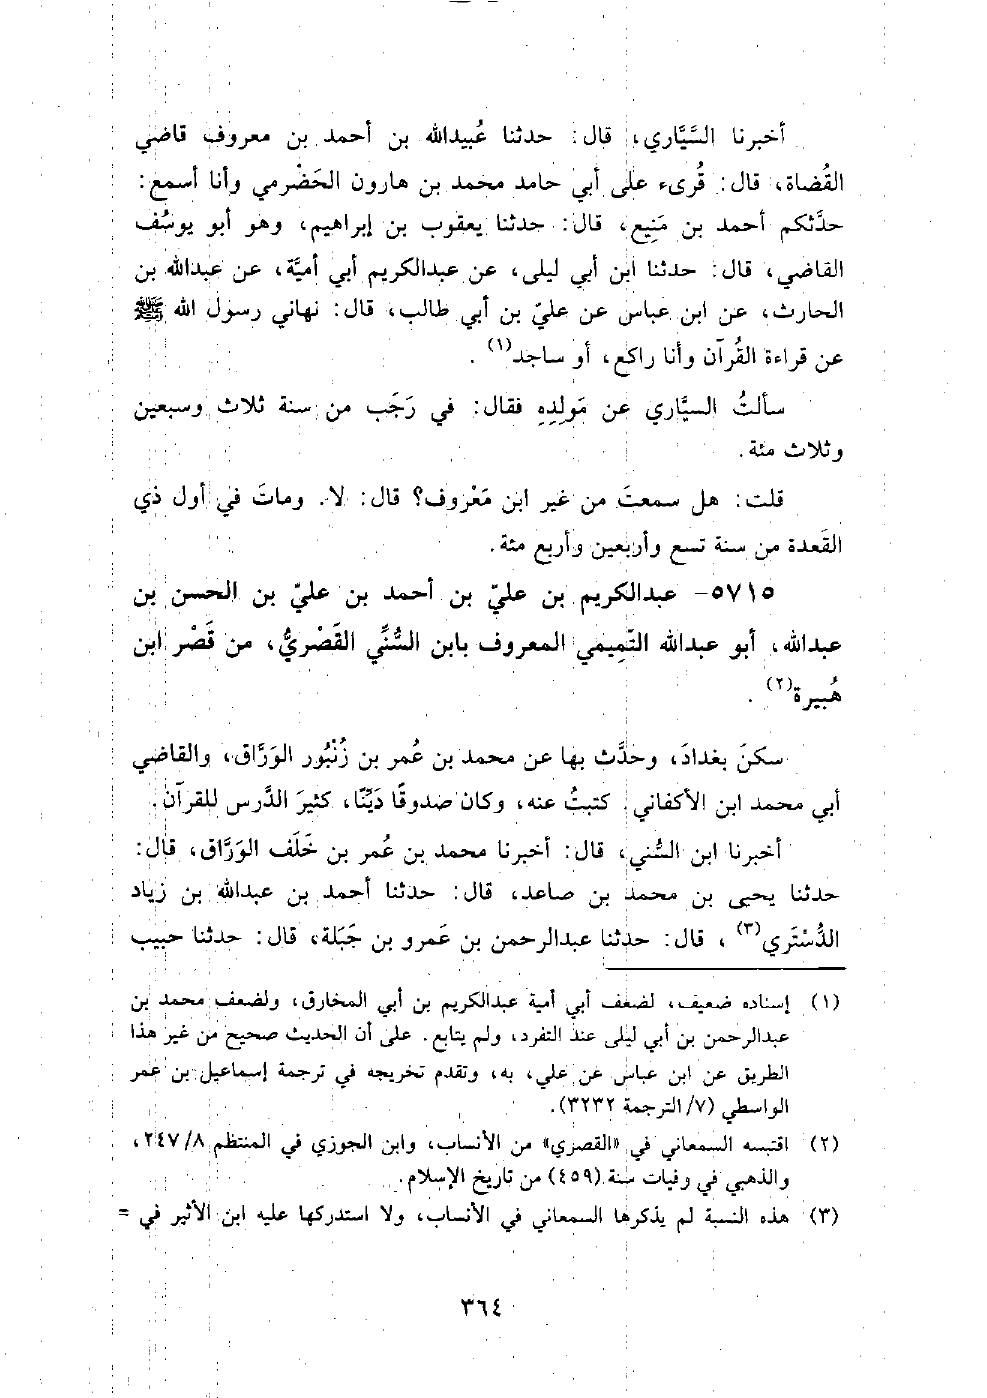 أخبرنا السَّيَّاري، قال: حدثنا عُبيدالله بن أحمد بن معروف قاضي
القُضاة، قال: قُرىء على أبي حامد محمد بن هارون الحَضْرمي وأنا أسمع:
حدَّثكم أحمد بن مَنِيع، قال: حدثنا يعقوب بن إبراهيم، وهو أبو يوسُف
القاضي، قال: حدثنا ابن أبي ليلى، عن عبدالكريم أبي أميَّة، عن عبدالله بن
الحارث، عن ابن عباس عن عليّ بن أبي طالب، قال: نهاني رسول الله ﷺ
عن قراءة القُرآن وأنا راكع، أو ساجد(١) .
سألتُ السيَّاري عن مَولِدِهِ فقال: في رَجَب من سنة ثلاث وسبعين
وثلاث مئة.
قلت: هل سمعتَ من غير ابن مَعْروف؟ قال: لا. وماتَ في أول ذي
القَعدة من سنة تسع وأربعين وأربع مئة.
٥٧١٥- عبدالكريم بن عليّ بن أحمد بن عليّ بن الحسن بن
عبدالله، أبو عبدالله التَّمِيمي المعروف بابن السُّنِّي القَصْريُّ، من قَصْر ابن
هُبيرة(٢) .
سكنَ بغدادَ، وحدَّث بها عن محمد بن عُمر بن زُنْبُور الوَرَّاق، والقاضي
أبي محمد ابن الأكفاني. كتبتُ عنه، وكان صدوقًا دَيِّنًا، كثيرَ الدَّرس للقرآن.
أخبرنا ابن السُّني، قال: أخبرنا محمد بن عُمر بن خَلَف الوَرَّاق، قال:
حدثنا يحيى بن محمد بن صاعد، قال: حدثنا أحمد بن عبدالله بن زياد
الدُّسْتَري(٣) ، قال: حدثنا عبدالرحمن بن عَمرو بن جَبَلة، قال: حدثنا حبيب
(١) إسناده ضعيف، لضعف أبي أمية عبدالكريم بن أبي المخارق، ولضعف محمد بن
عبدالرحمن بن أبي ليلى عند التفرد، ولم يتابع. على أن الحديث صحيح من غير هذا
الطريق عن ابن عباس عن علي، به، وتقدم تخريجه في ترجمة إسماعيل بن عمر
الواسطي (٧/ الترجمة ٣٢٣٢).
(٢) اقتبسه السمعاني في «القصري» من الأنساب، وابن الجوزي في المنتظم ٨/ ٢٤٧،
والذهبي في وفيات سنة (٤٥٩) من تاريخ الإسلام.
(٣) هذه النسبة لم يذكرها السمعاني في الأنساب، ولا استدركها عليه ابن الأثير في =
٣٦٤